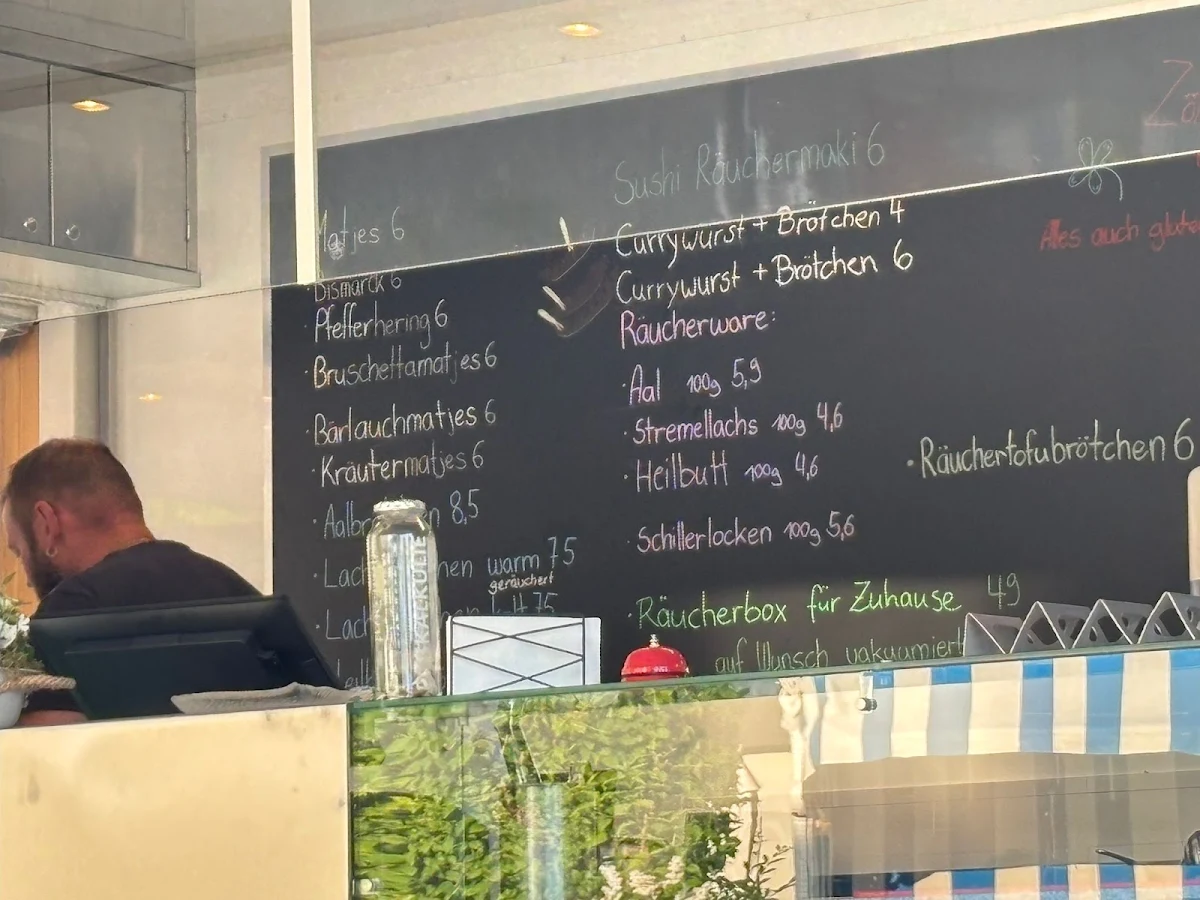 Matjes 6
Bismarck 6
Pfefferhering 6
Bruschettamatjes 6
Bärlauchmatjes 6
Kräutermatjes 6
8,5
warm 7,5
geräuchert
7,5
Sushi Räuchermaki 6
Currywurst + Brötchen 4
Currywurst + Brötchen 6
Räucherware:
Aal 100g 5,9
Stremellachs 100g 4,6
Heilbutt 100g 4,6
Schillerlocken 100g 5,6
Räucherbox für Zuhause 49
auf Wunsch vakuumiert
Alles auch
Räuchertofubrötchen 6